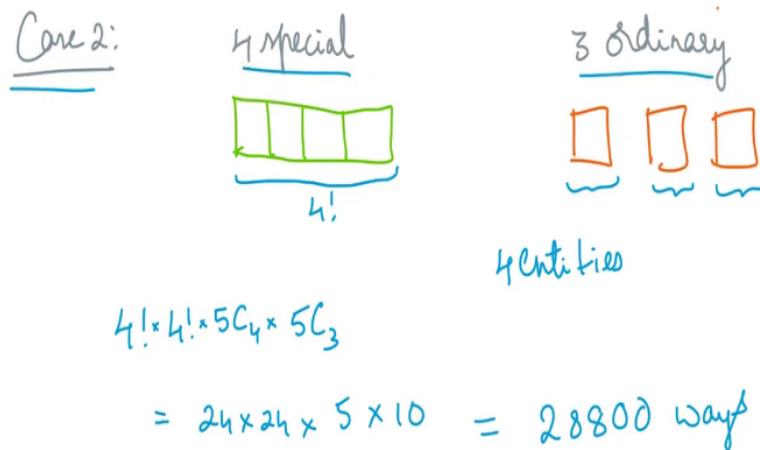 Case 2: 4 special 3 ordinary
4!
4 entities
4! × 4! × 5C₄ × 5C₃
= 24 × 24 × 5 × 10 = 28800 ways